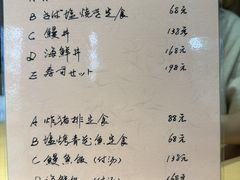 B さば塩焼き定食 68元
C 鰻丼 138元
D 海鮮丼 168元
E 寿司セット 198元
A 炸猪排定食 88元
B 塩烤青花鱼定食 68元
C 鳗鱼饭(付汤) 138元
D 168元